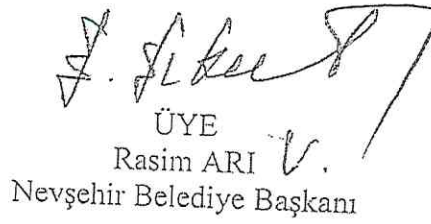 ÜYE
Rasim ARI V.
Nevşehir Belediye Başkanı